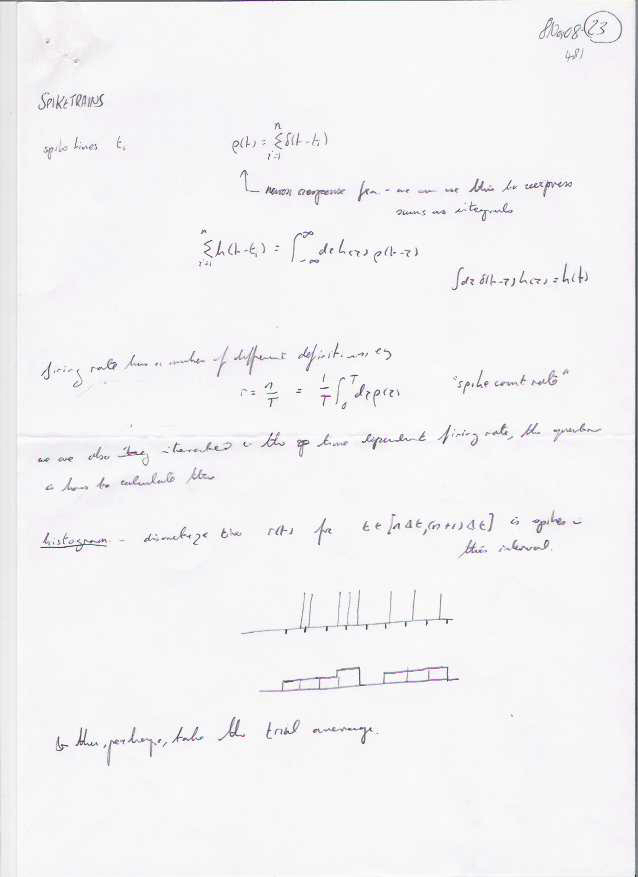 23
481
SPIKETRAINS
spike times tᵢ
ρ(t) = Σᵢ₌₁ⁿ δ(t-tᵢ)
neuron response fn - we can use this to express
sums as integrals
Σᵢ₌₁ⁿ h(t-tᵢ) = ∫₋∞^∞ dτ h(τ) ρ(t-τ)
∫dτ δ(t-τ) h(τ) = h(t)
firing rate has a number of different definitions eg
r = n/T = 1/T ∫₀ᵀ dτ ρ(τ) "spike count rate"
we are also interested in the time dependent firing rate, the question
is how to calculate this
histogram - discretize time r(t) for t ∈ [nΔt, (n+1)Δt] is spikes in
this interval.
& then, perhaps, take the trial average.